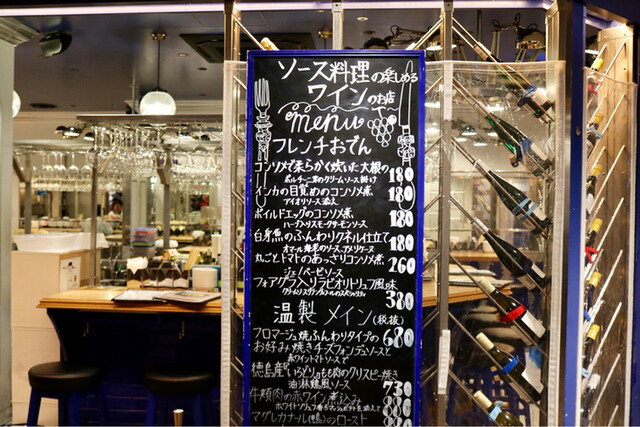 ソース料理の楽しめる
ワインのお店
menu
フレンチおでん
コンソメで柔らかく炊いた大根の
ポルチーニ茸のクリームソース掛け 180
インカの目覚めのコンソメ煮
アイオリソース添え 180
ボイルドエッグのコンソメ煮
ハーブトリュフスモークサーモンソース 180
白身魚のふんわりクネル仕立て
オマール海老のソースアメリケーヌ 180
丸ごとトマトのあっさりコンソメ煮
ジェノベーゼソース 260
フォアグラ入りラビオリトリュフ風味
380
温製メイン(税抜)
フロマージュ焼ふんわりタイプの 680
お好み焼きチーズフォンデュソースと
赤ワイントマトソースで
徳島産いらどりのもも肉のクリスピー焼き
油淋鶏風ソース 730
牛頬肉の赤ワイン煮込み
ホワイトソース
マグレカナール(鴨)のロースト